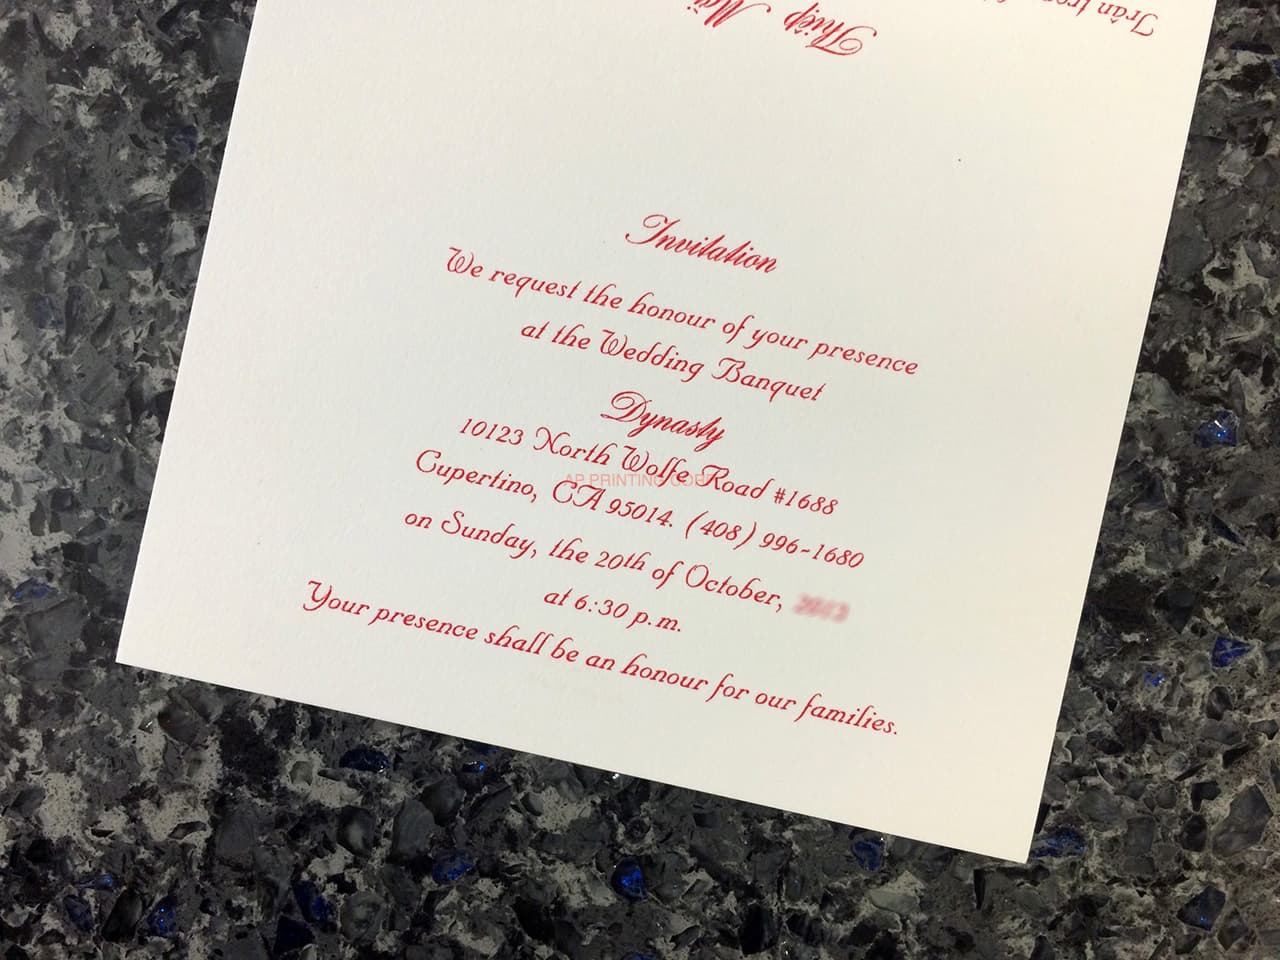 Thiệp Mời
Trân
Invitation
We request the honour of your presence
at the Wedding Banquet
Dynasty
10123 North Wolfe Road #1688
Cupertino, CA 95014. (408) 996-1680
on Sunday, the 20th of October,
at 6:30 p.m.
Your presence shall be an honour for our families.
AP PRINTING CORP